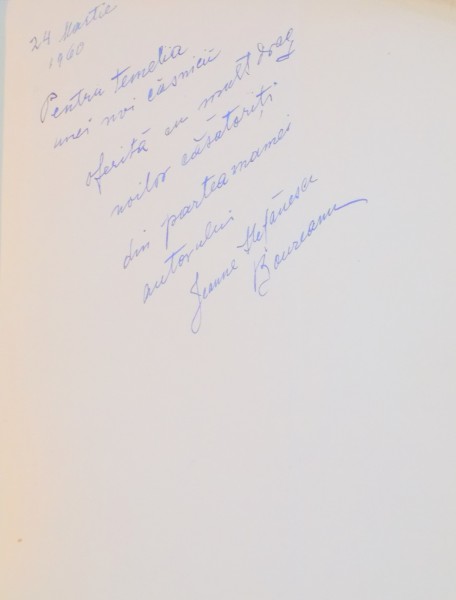 24 Martie
1960
Pentru temelia
unei noi căsnicii
oferită cu mult drag
noilor căsătoriți
din partea mamei
autorului
Jeanne Ștefănescu
Boureanu